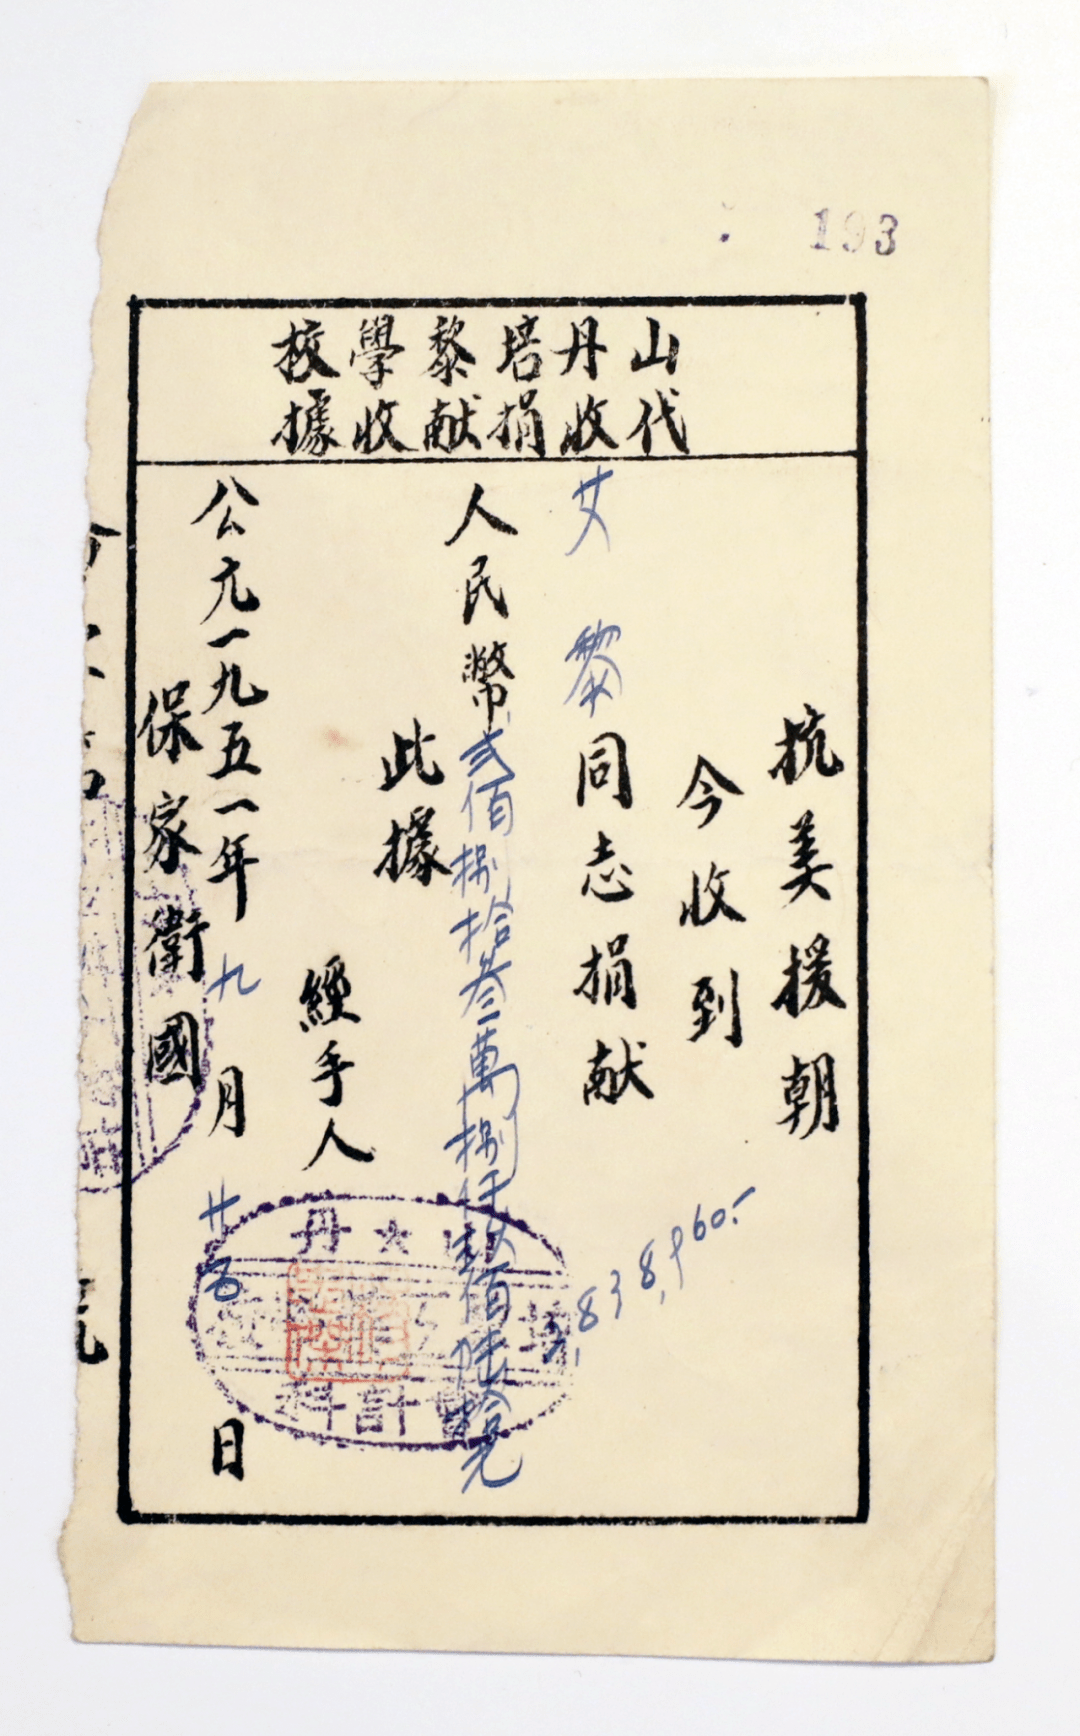 193
山丹培黎學校
代收捐献收據
抗美援朝
今收到
艾黎同志捐献
人民幣貳佰捌拾叁萬捌仟玖佰陸拾元
2,838,960.-
此據
經手人
公元一九五一年九月廿五日
保家衛國
丹
會計科